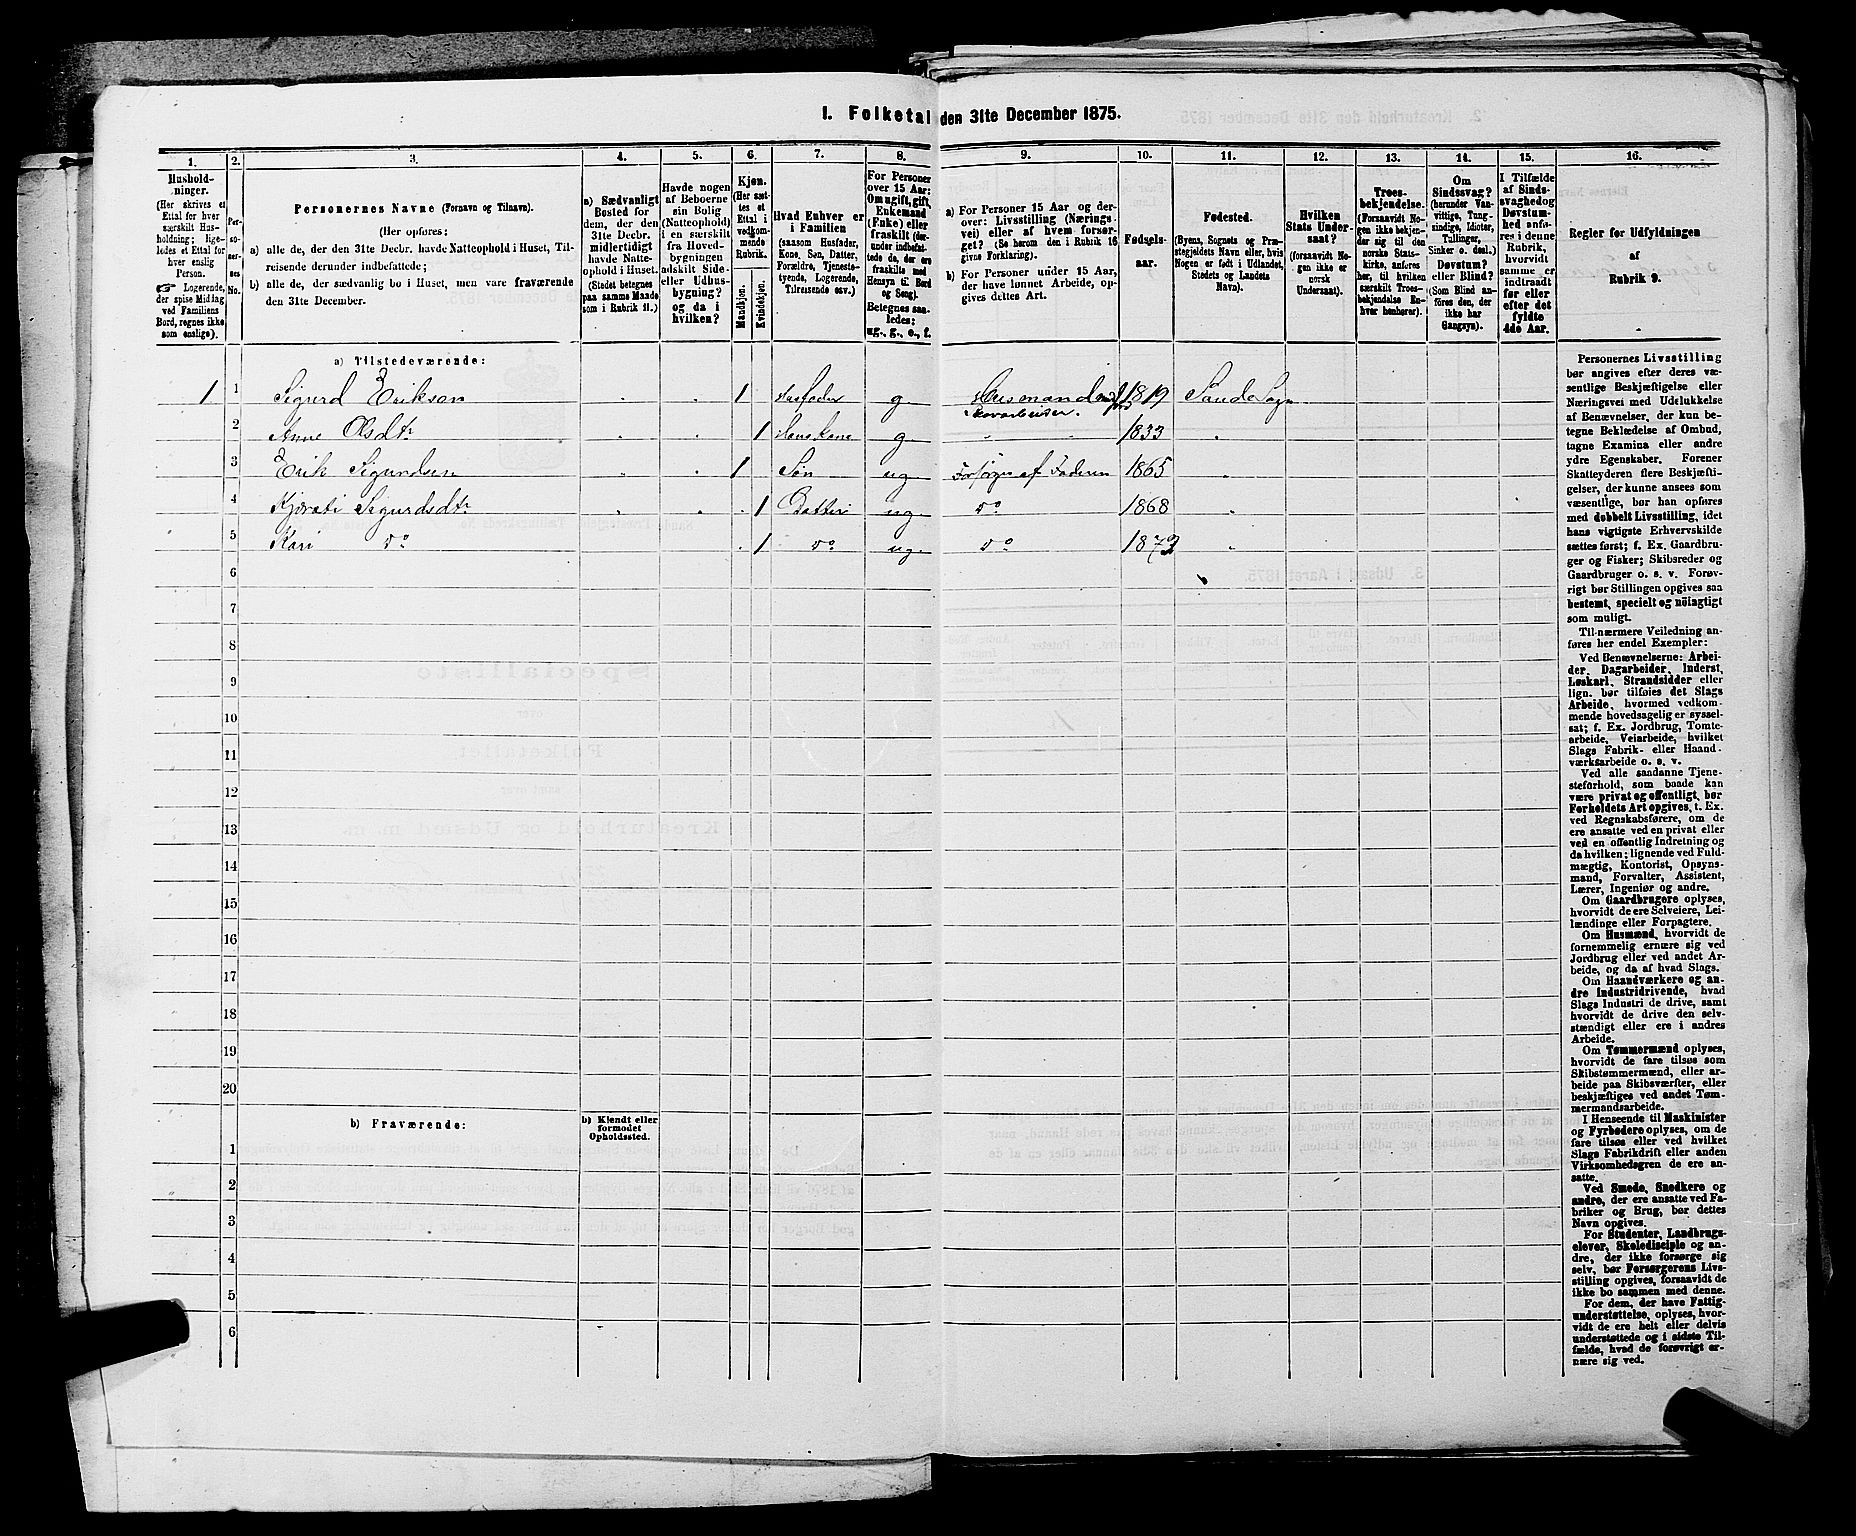 1. Folketal den 31te December 1875.
1. 2. 3. 4. 5. 6. 7. 8. 9. 10. 11. 12. 13. 14. 15. 16.
Hushold-
ninger.
(Her skrives et
Ettal for hver
særskilt Hus-
holdning; lige-
ledes et Ettal for
hver enslig
Person.
☞ Logerende,
der spise Middag
ved Familiens
Bord, regnes ikke
som enslige).
Per-
so-
ner-
nes
No.
Personernes Navne (Fornavn og Tilnavn).
(Her opføres:
a) alle de, der den 31te Decbr. havde Natteophold i Huset, Til-
reisende derunder indbefattede;
b) alle de, der sædvanlig bo i Huset, men vare fraværende
den 31te December.
a) Sædvanligt
Bosted for
dem, der den
31te Decbr.
midlertidigt
havde Natte-
ophold i Huset.
(Stedet betegnes
paa samme Maade
som i Rubrik 11.)
Havde nogen
af Beboerne
sin Bolig
(Natteophold)
i en særskilt
fra Hoved-
bygningen
adskilt Side-
eller Udhus-
bygning?
og da i
hvilken?
Kjøn.
(Her sæt-
tes et
Ettal i
vedkom-
mende
Rubrik.
Mandkjøn.
Kvindekjøn.
Hvad Enhver er
i Familien
(saasom Husfader,
Kone, Søn, Datter,
Forældre, Tjeneste-
tyende, Logerende,
Tilreisende osv.)
For Personer
over 15 Aar:
Om ugift, gift,
Enkemand
(Enke) eller
fraskilt (der-
under indbefat-
tede de, der ere
fraskilte med
Hensyn til Bord
og Seng).
Betegnes saa-
ledes:
ug., g., e., f.
a) For Personer 15 Aar og der-
over: Livsstilling (Nærings-
vei) eller af hvem forsør-
get? (Se herom den i Rubrik 16
givne Forklaring).
b) For Personer under 15 Aar,
der have lønnet Arbeide, op-
gives dettes Art.
Fødsels-
aar.
Fødested.
(Byens, Sognets og Præ-
stegjeldets Navn eller, hvis
Nogen er født i Udlandet,
Stedets og Landets
Navn).
Hvilken
Stats Under-
saat?
(forsaavidt No-
gen ikke er
norsk
Undersaat).
Troes-
bekjendelse.
(Forsaavidt No-
gen ikke bekjen-
der sig til den
norske Stats-
kirke, anføres
her, til hvilken
særskilt Troes-
bekjendelse En-
hver henhører).
Om
Sindssvag?
(herunder Van-
vittige, Tung-
sindige, Idioter,
Tullinger,
Sinker o. desl.)
Døvstum?
eller Blind?
(Som Blind an-
føres den, der
ikke har
Gangsyn).
I Tilfælde
af Sinds-
svaghed og
Døvstum-
hed anfø-
res i denne
Rubrik,
hvorvidt
samme er
indtraadt
før eller
efter det
fyldte
4de Aar.
Regler for Udfyldningen
af
Rubrik 9.
a) Tilstedeværende:
1 1 Sigurd Eriksen " " 1 Husfader g. Husmand med Jord 1819 Sande Sogn
Skovarbeider.
2 Anne Olsdtr " " 1 Huskone g " " 1833 "
3 Erik Sigurdsen " " 1 Søn ug Forsørges af Faderen 1865 "
4 Kjersti Sigurdsdtr " " 1 Datter ug do 1868 "
5 Kari do 1 do ug do 1873 "
6
7
8
9
10
11
12
13
14
15
16
17
18
19
20
b) Fraværende:
b) Kjendt eller
formodet
Opholdssted.
1
2
3
4
5
6
Personernes Livsstilling
bør angives efter deres væ-
sentlige Beskjæftigelse eller
Næringsvei med Udelukkelse
af Benævnelser, der kun be-
tegne Beklædelse af Ombud,
tagne Examina eller andre
ydre Egenskaber. Forener
Skatteyderen flere Beskjæfti-
gelser, der kunne ansees som
væsentlige, bør han opføres
med dobbelt Livsstilling, idet
hans vigtigste Erhvervskilde
sættes først; f. Ex. Gaardbru-
ger og Fisker; Skibsreder og
Gaardbruger o. s. v. Forøv-
rigt bør Stillingen opgives saa
bestemt, specielt og nøiagtigt
som muligt.
Til nærmere Veiledning an-
føres her endel Exempler:
Ved Benævnelserne: Arbei-
der, Dagarbeider, Inderst,
Løskarl, Strandsidder eller
lign. bør tilføies det Slags
Arbeide, hvormed vedkom-
mende hovedsagelig er syssel-
sat; f. Ex. Jordbrug, Tomte-
arbeide, Veiarbeide, hvilket
Slags Fabrik- eller Haand-
værksarbeide o. s. v.
Ved alle saadanne Tjene-
steforhold, som baade kan
være privat og offentligt, bør
Forholdets Art opgives, t. Ex.
ved Regnskabsførere, om de
ere ansatte ved en privat eller
ved en offentlig Indretning og
da hvilken; lignende ved Fuld-
mægtig, Kontorist, Opsyns-
mand, Forvalter, Assistent,
Lærer, Ingeniør og andre.
Om Gaardbrugere oplyses,
hvorvidt de ere Selveiere, Lei-
lændinge eller Forpagtere.
Om Husmænd, hvorvidt de
fornemmelig ernære sig ved
Jordbrug eller ved andet Ar-
beide, og da af hvad Slags.
Om Haandværkere og an-
dre Industridrivende, hvad
Slags Industri de drive, samt
hvorvidt de drive den selv-
stændigt eller ere i andres
Arbeide.
Om Tømmermænd oplyses,
hvorvidt de fare tilsøs som
Skibstømmermænd, eller ar-
beide paa Skibsværfter, eller
beskjæftiges ved andet Tøm-
mermandsarbeide.
I Henseende til Maskinister
og Fyrbødere oplyses, om de
fare tilsøs eller ved hvilket
Slags Fabrikdrift eller anden
Virksomhedsgren de ere an-
satte.
Ved Smede, Snedkere og
andre, der ere ansatte ved Fa-
briker og Brug, bør dettes
Navn opgives.
For Studenter, Landbrugs-
elever, Skoledisciple og an-
dre, der ikke forsørge sig
selv, bør Forsørgerens Livs-
stilling opgives, forsaavidt de
ikke bo sammen med denne.
For dem, der have Fattig-
understøttelse, oplyses, hvor-
vidt de ere helt eller delvis
understøttede og i sidste Til-
fælde, hvad de forøvrigt er-
nære sig ved.